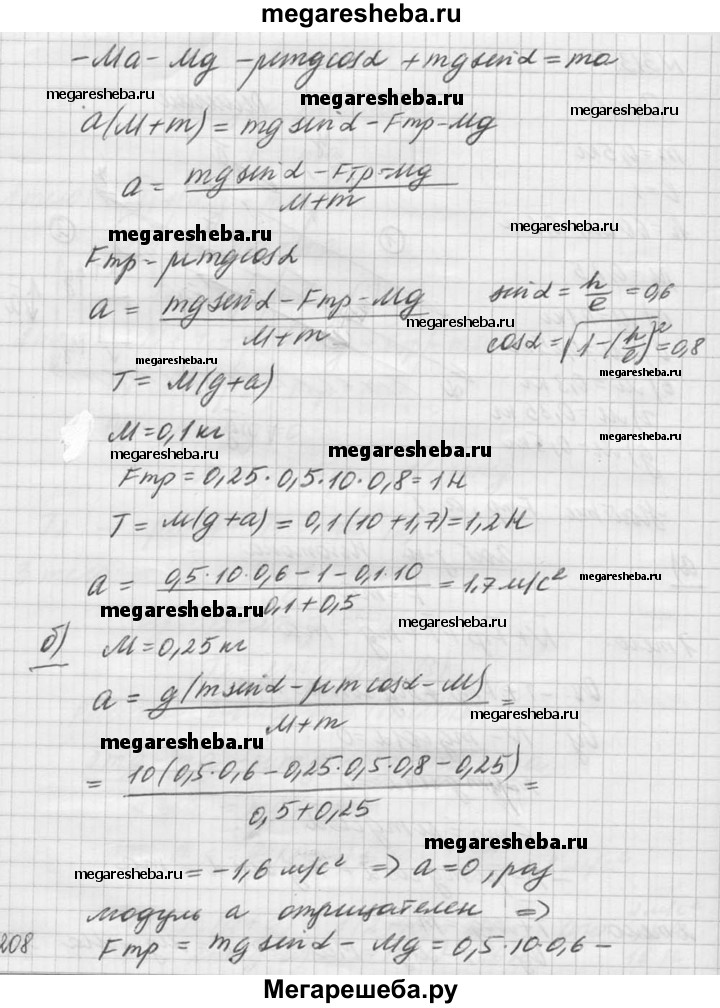 megaresheba.ru
-Ma - Mg - μmgcosα + mgsinα = ma
megaresheba.ru megaresheba.ru megaresheba.ru
a(M+m) = mgsinα - Fтр - Mg
a = (mgsinα - Fтр - Mg)/(M+m)
megaresheba.ru megaresheba.ru
Fтр = μmgcosα
a = (mgsinα - Fтр - Mg)/(M+m) sinα = h/e = 0,6
cosα = √(1-(h/e)²) = 0,8
megaresheba.ru megaresheba.ru
T = M(g+a)
M = 0,1 кг
megaresheba.ru megaresheba.ru megaresheba.ru
Fтр = 0,25·0,5·10·0,8 = 1 Н
T = M(g+a) = 0,1(10+1,7) = 1,2 Н
a = (0,5·10·0,6 - 1 - 0,1·10)/(0,1+0,5) = 1,7 м/с²
megaresheba.ru
megaresheba.ru megaresheba.ru
б) M = 0,25 кг
a = g(msinα - μmcosα - M)/(M+m) =
megaresheba.ru megaresheba.ru
= 10(0,5·0,6 - 0,25·0,5·0,8 - 0,25)/(0,5+0,25) =
megaresheba.ru
megaresheba.ru
= -1,6 м/с² ⇒ a = 0, раз
модуль a отрицателен ⇒
208 Fтр = mgsinα - Mg = 0,5·10·0,6 -
Мегарешеба.ру